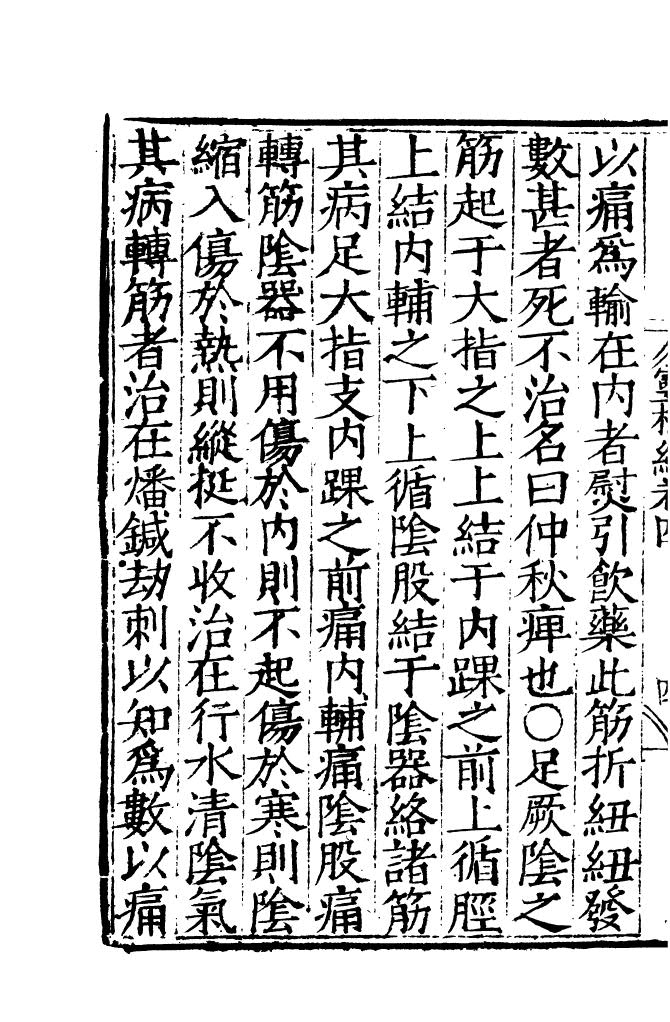 以痛為輸在内者熨引飲藥此筋折紐紐發
數甚者死不治名曰仲秋痺也○足厥隂之
筋起于大指之上上結于内踝之前上循脛
上結内輔之下上循隂股結于隂器絡諸筋
其病足大指支内踝之前痛内輔痛隂股痛
轉筋隂器不用傷於内則不起傷於寒則隂
縮入傷於熱則縱挺不收治在行水清隂氣
其病轉筋者治在燔鍼劫刺以知為數以痛